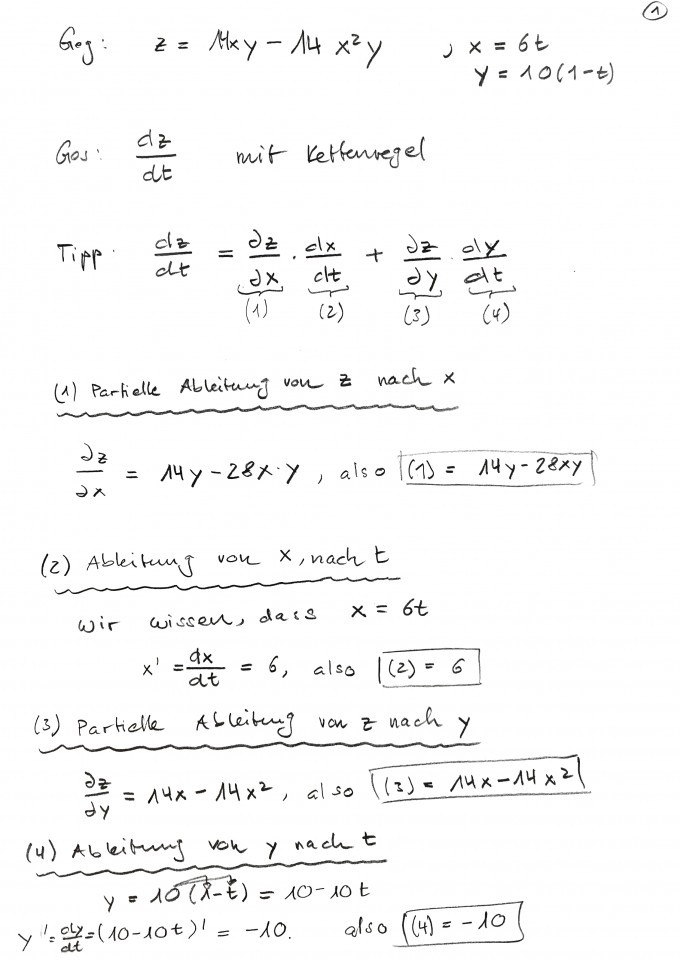 1
Geg: z = 14xy − 14 x²y , x = 6t
y = 10(1−t)
Ges: dz/dt mit Kettenregel
Tipp: dz/dt = ∂z/∂x · dx/dt + ∂z/∂y · dy/dt
(1) (2) (3) (4)
(1) Partielle Ableitung von z nach x
∂z/∂x = 14y − 28x·y , also (1) = 14y − 28xy
(2) Ableitung von x, nach t
Wir wissen, dass x = 6t
x' = dx/dt = 6, also (2) = 6
(3) Partielle Ableitung von z nach y
∂z/∂y = 14x − 14x², also (3) = 14x − 14x²
(4) Ableitung von y nach t
y = 10(1−t) = 10−10t
y' = dy/dt = (10−10t)' = −10. also (4) = −10